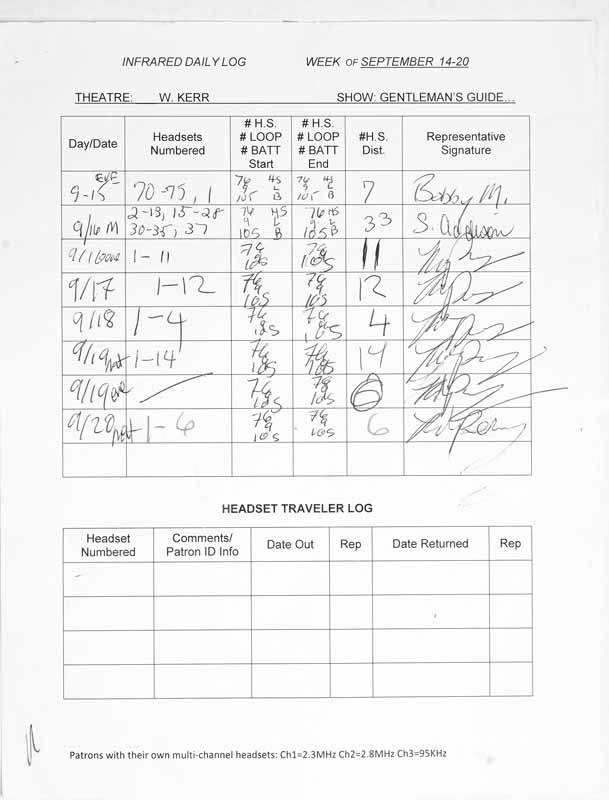 INFRARED DAILY LOG WEEK OF SEPTEMBER 14-20
THEATRE: W. KERR SHOW: GENTLEMAN'S GUIDE...
Day/Date Headsets Numbered # H.S. # LOOP # BATT Start # H.S. # LOOP # BATT End #H.S. Dist. Representative Signature
9-15 EVE 70-75, 1 76 HS 9 L 105 B 76 HS 9 L 105 B 7 Bobby M.
9/16 M 2-13, 15-28 30-35, 37 76 HS 9 L 105 B 76 HS 9 L 105 B 33 S. Addison
9/16 eve 1-11 76 9 105 76 9 105 11
9/17 1-12 76 9 105 76 9 105 12
9/18 1-4 76 9 105 76 9 105 4
9/19 mat 1-14 76 9 105 76 9 105 14
9/19 eve 76 9 105 78 9 105
9/20 mat 1-6 76 9 105 76 9 105 6
HEADSET TRAVELER LOG
Headset Numbered Comments/ Patron ID Info Date Out Rep Date Returned Rep
Patrons with their own multi-channel headsets: Ch1=2.3MHz Ch2=2.8MHz Ch3=95KHz